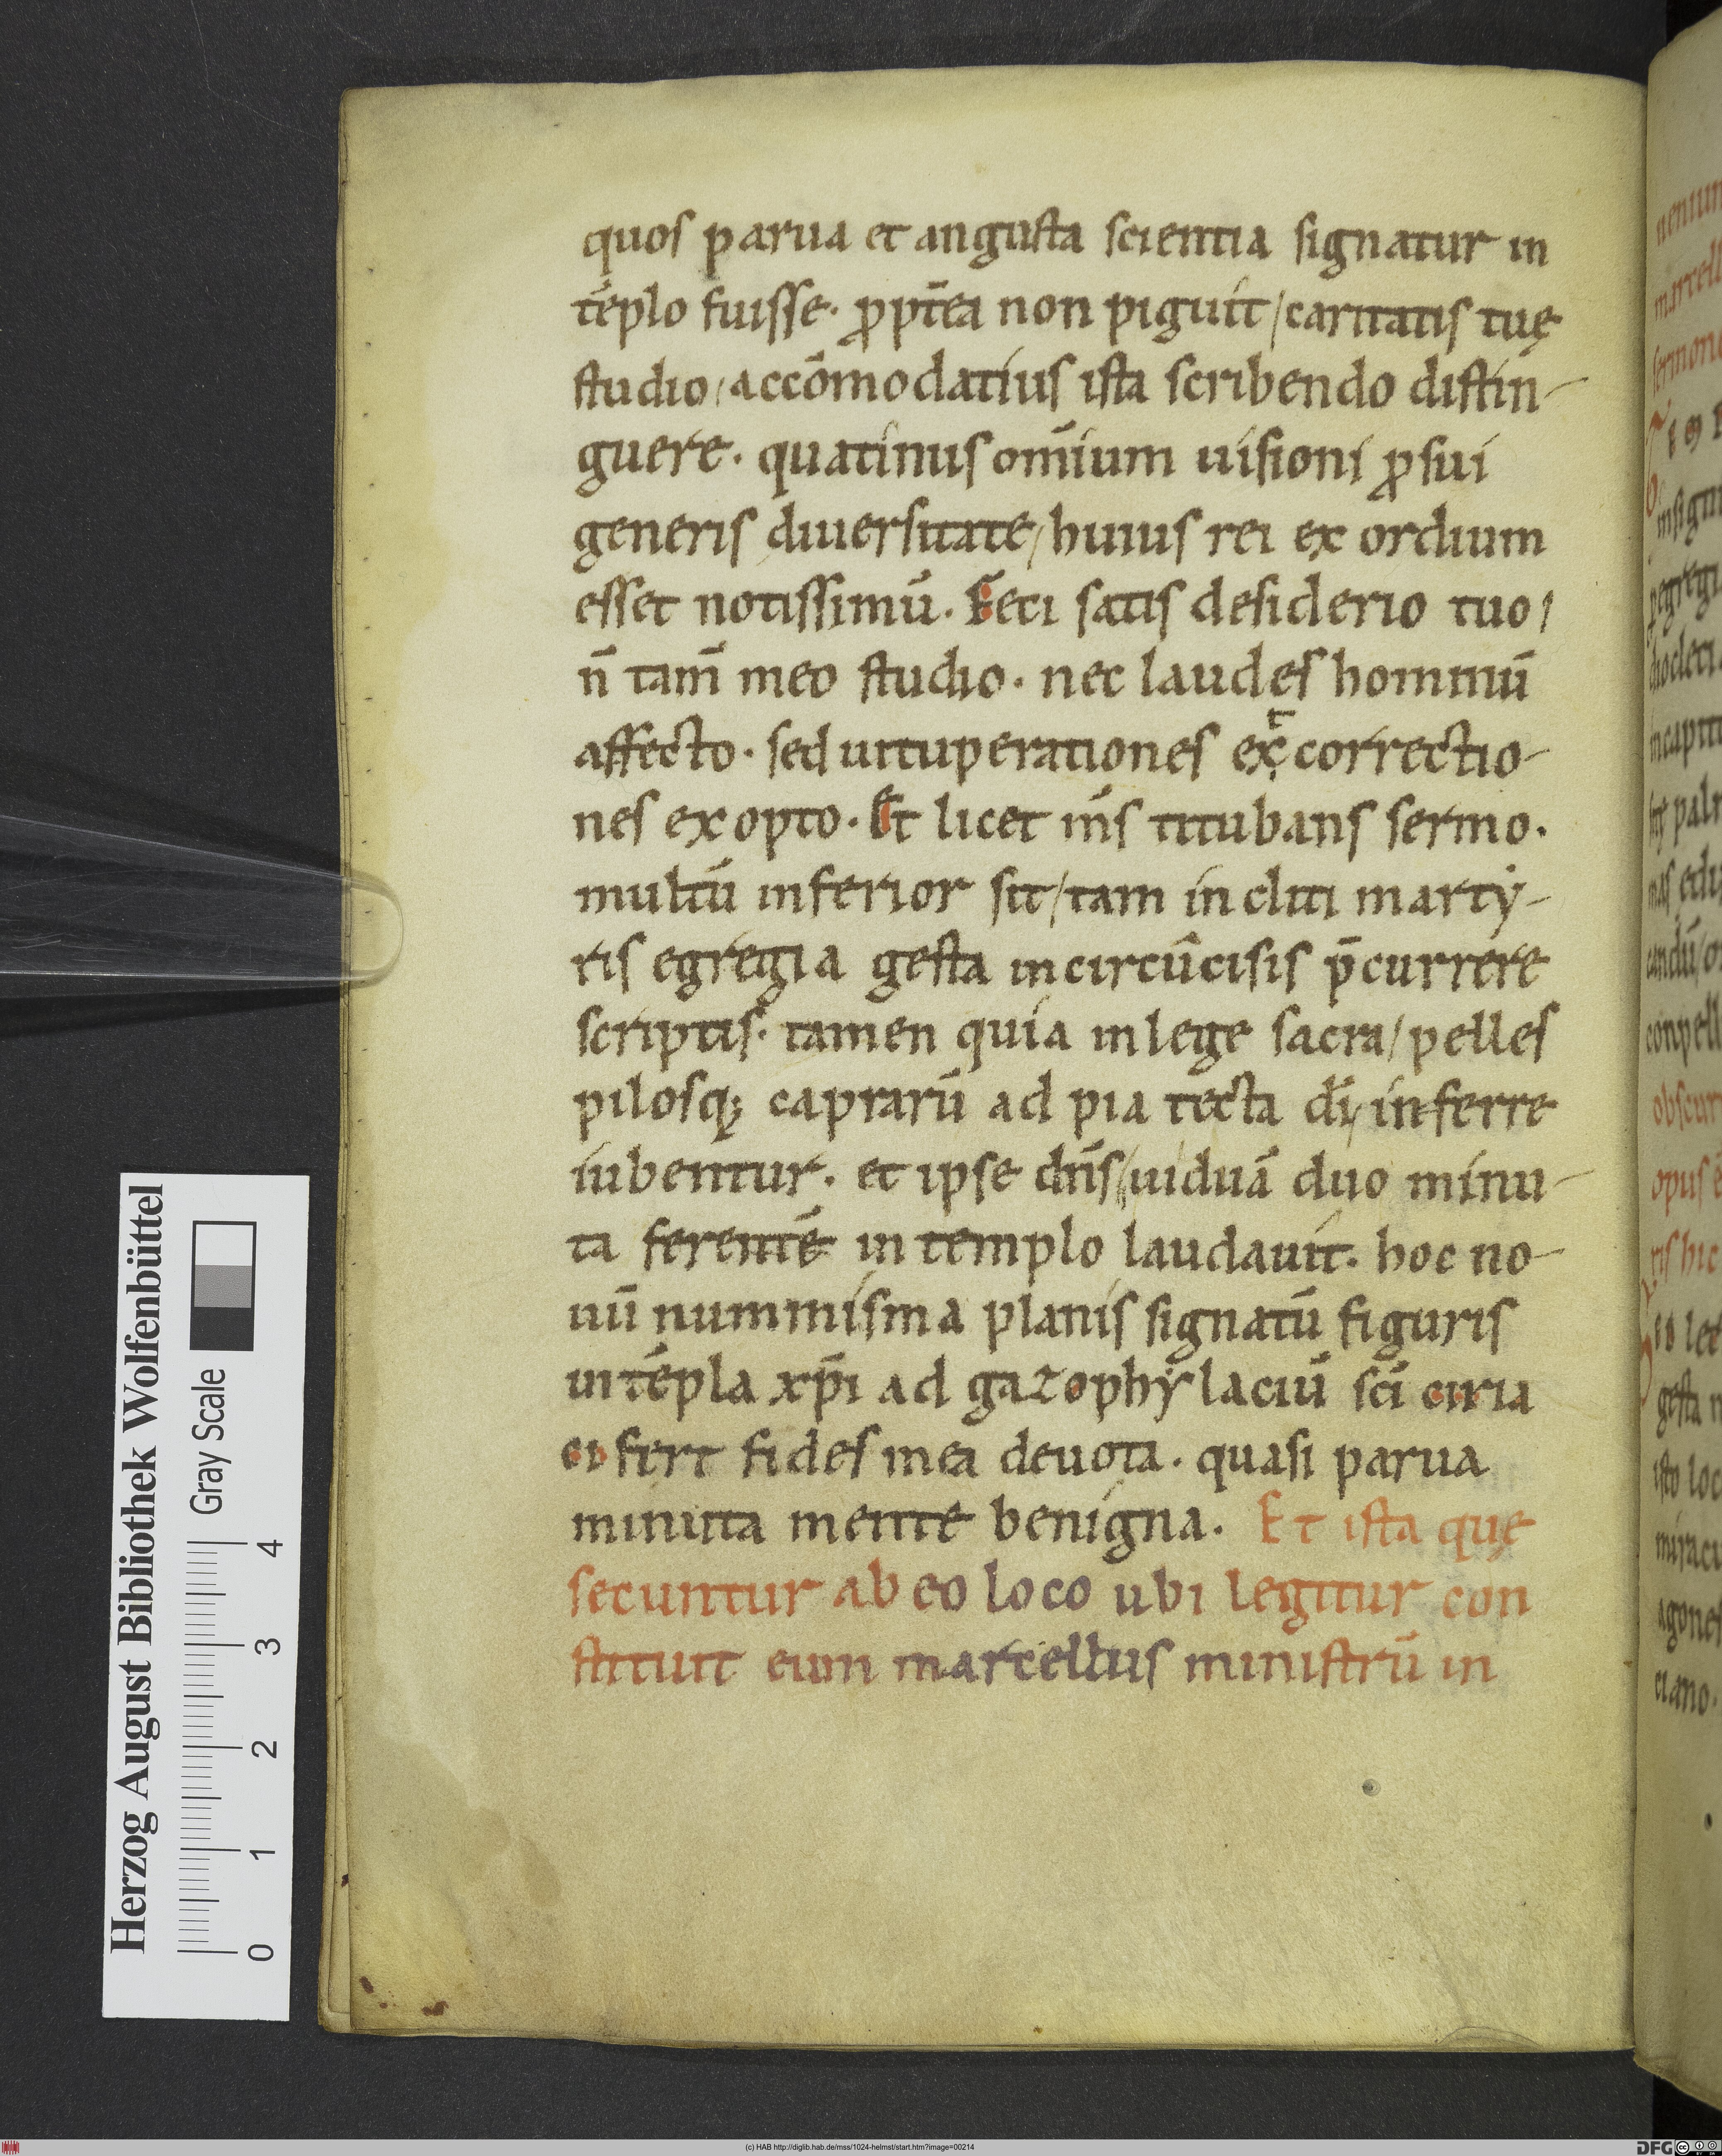 quos parua et angusta scientia signatur in
tēplo fuisse. ꝓpt̄ea non piguit / caritatis tuę
studio / accōmodatius ista scribendo distin-
guere. quatinus om̄ium uisioni ꝓ sui
generis diuersitate / huius rei ex ordium
esset notissimū. Feci satis desiderio tuo /
n̄ tam̄ meo studio. nec laudes hominū
affecto. sed uituperationes et correctio-
nes ex opto. Et licet m̄s titubans sermo.
multū inferior sit / tam incliti martẏ-
ris egregia gesta incircūcisis p̄currere
scriptis. tamen quia in lege sacra / pelles
pilosq; caprarū ad pia tecta dī / inferre
iubentur. et ipse dn̄s / uiduā duo minu-
ta ferentē in templo laudauit. hoc no-
uū nummisma planis signatū figuris
in tēpla xp̄i ad gazophẏlaciū sc̄i ciria
ci fert fides mea deuota. quasi parua
minuta mente benigna. Et ista quę
secuntur ab eo loco ubi legitur con
stituit eum marcellus ministrū in
Herzog August Bibliothek Wolfenbüttel
Gray Scale
0 1 2 3 4
(c) HAB http://diglib.hab.de/mss/1024-helmst/start.htm?image=00214
DFG